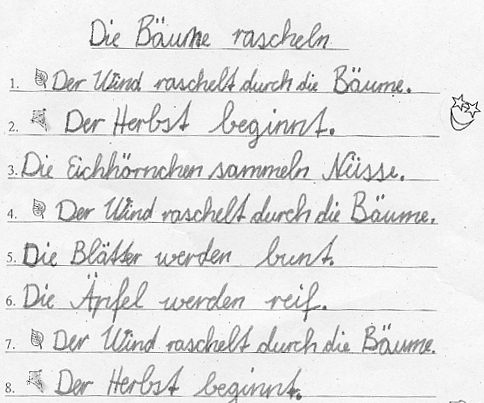 Die Bäume rascheln
1. Der Wind raschelt durch die Bäume.
2. Der Herbst beginnt.
3. Die Eichhörnchen sammeln Nüsse.
4. Der Wind raschelt durch die Bäume.
5. Die Blätter werden bunt.
6. Die Äpfel werden reif.
7. Der Wind raschelt durch die Bäume.
8. Der Herbst beginnt.